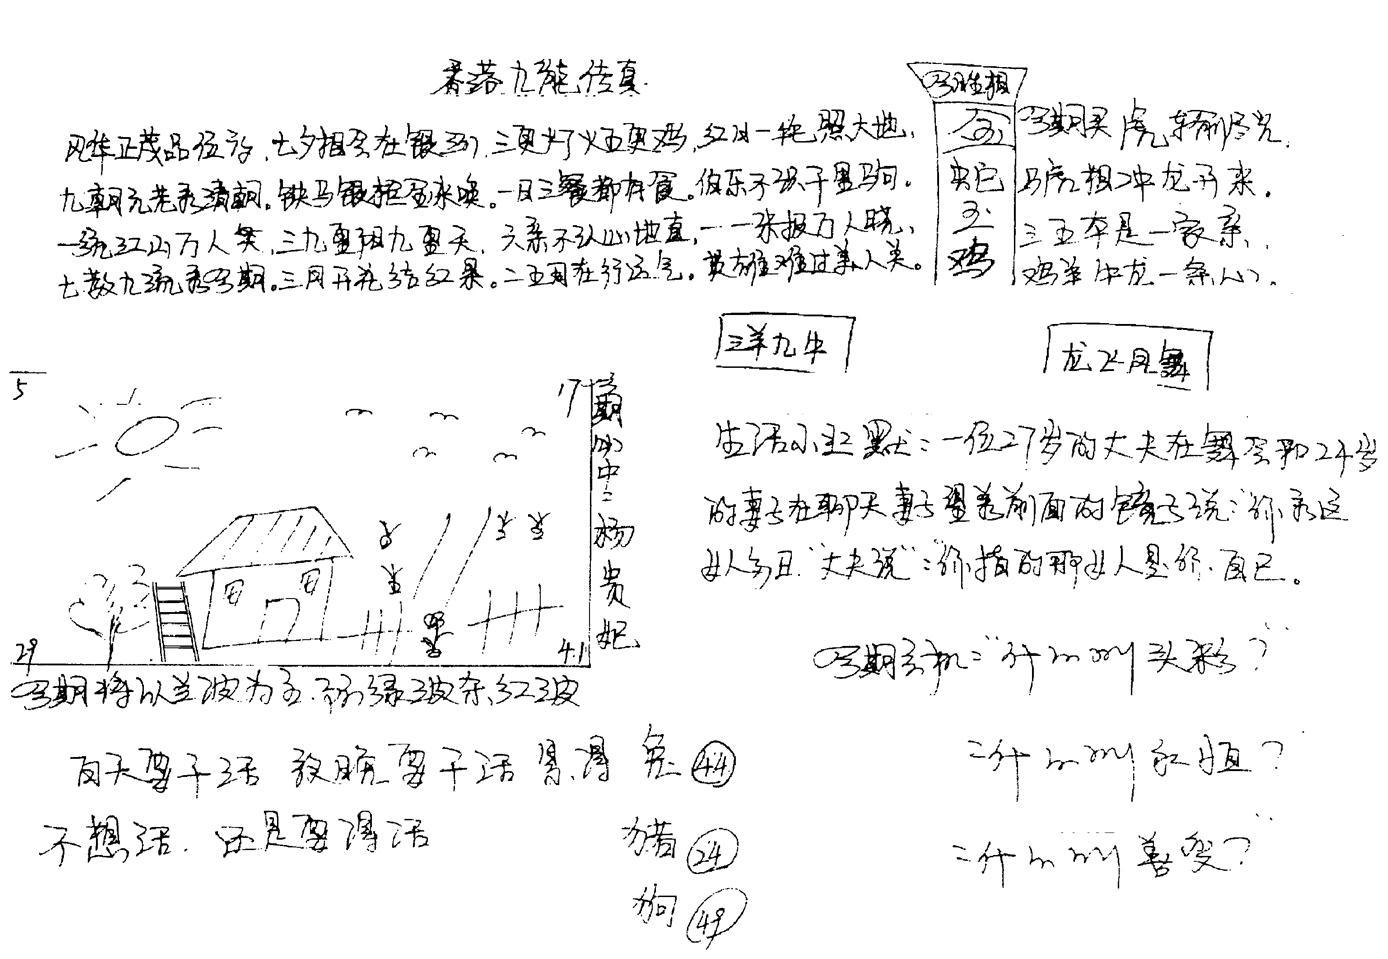 香港九龍传真
风华正茂品位高，七夕相会在银河，三更灯火五更鸡，红日一轮照大地，
九朝元老秀清朝。铁马银枪金来唤。一日三餐都有食。伯乐不识千里马句。
一统江山万人笑，三九重阳九重天，六亲不认心地直，一一张报万人晓，
七数九流秀今期。三月开花结红果。二五同在行运气。英雄难过美人关。
今期买虎车前尽光，
马虎相冲龙开来。
三五本是一家亲，
鸡羊冲龙一条心。
鸡
三羊九牛
龙飞凤舞
5
17
29
41
期 中：杨贵妃
今期将以兰波为主，防绿波杂红波
生活小幽默：一位27岁的丈夫在舞会和24岁
的妻子在聊天妻子望着前面的镜子说：你看这
女人多丑“丈夫说”：你指的那女人是你自己。
今期玄机：“什么叫头彩？”
：什么叫永恒？
：什么叫善变？
白天要干活 夜晚要干活 累得
不想活．还是要得活
兔 44
猪 24
狗 49